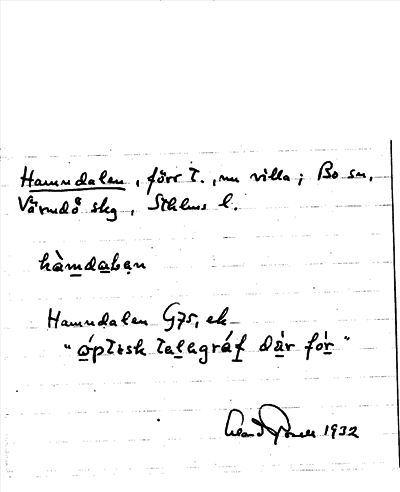 Hamndalen, förr t., nu villa; Bo sn,
Värmdö skg, Sthlms l.
hàmdalen
Hamndalen G75, ek
"óptisk talagráf där fór"
1932